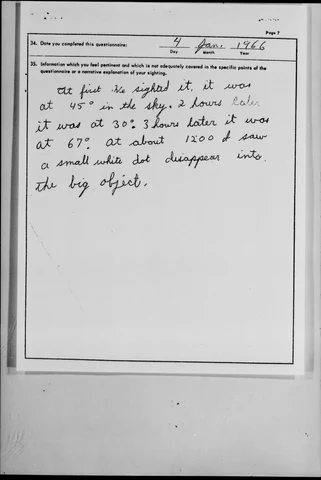 Page 7
34. Date you completed this questionnaire: 4 Jan. 1966
Day Month Year
35. Information which you feel pertinent and which is not adequately covered in the specific points of the
questionnaire or a narrative explanation of your sighting.
At first We sighted it, it was
at 45° in the sky. 2 hours later
it was at 30°. 3 hours later it was
at 67°. at about 1200 I saw
a small white dot disappear into
the big object.